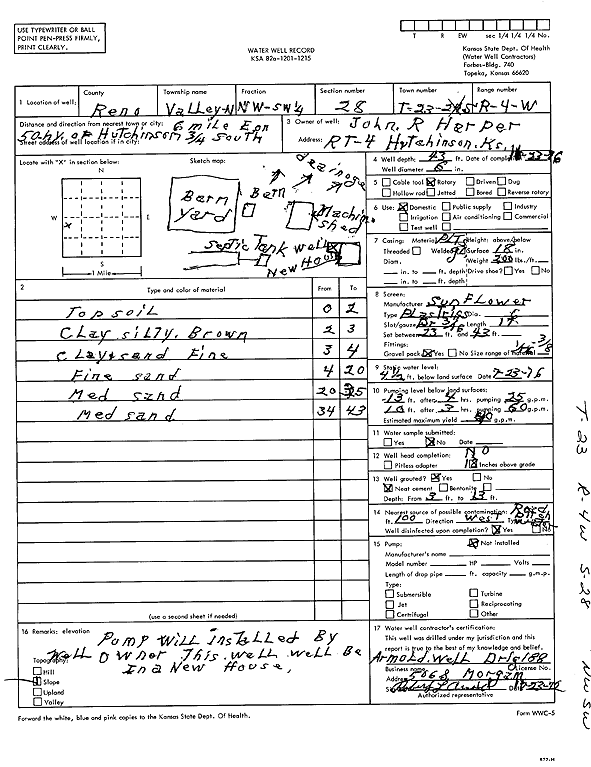 USE TYPEWRITER OR BALL
POINT PEN-PRESS FIRMLY,
PRINT CLEARLY.
WATER WELL RECORD
KSA 82a-1201-1215
T R EW sec 1/4 1/4 1/4 No.
Kansas State Dept. Of Health
(Water Well Contractors)
Forbes-Bldg. 740
Topeka, Kansas 66620
County Township name Fraction Section number Town number Range number
1 Location of well: Reno Valley-N NW-SW4 28 T-23- R-4-W
Distance and direction from nearest town or city: 6 mile
of Hutchinson 3/4 South
Street address of well location if in city:
3 Owner of well: John. R Harper
Address: RT-4 Hutchinson. Ks.
Locate with "X" in section below:
N
W
E
S
1 Mile
Sketch map:
Barn
yard
Barn
Machin
shed
Septic Tank well
New House
4 Well depth: 43 ft. Date of completion
Well diameter in.
5 Cable tool Rotary Driven Dug
Hollow rod Jetted Bored Reverse rotary
6 Use: Domestic Public supply Industry
Irrigation Air conditioning Commercial
Test well
7 Casing: Material Height: above/below
Threaded Welded Surface 18 in.
Diam. Weight 200 lbs./ft.
in. to ft. depth Drive shoe? Yes No
in. to ft. depth
2 Type and color of material From To
Top soil 0 2
Clay silty. Brown 2 3
Clay+sand Fine 3 4
Fine sand 4 20
Med sand 20
Med sand 34 43
(use a second sheet if needed)
8 Screen:
Manufacturer SunFlower
Type Dia.
Slot/gauze Length
Set between 23 ft. and 43 ft.
Fittings:
Gravel pack Yes No Size range of material
9 Static water level:
4 1/2 ft. below land surface Date 7-23-76
10 Pumping level below land surfaces:
13 ft. after 4 hrs. pumping 25 g.p.m.
ft. after hrs. pumping 60 g.p.m.
Estimated maximum yield g.p.m.
11 Water sample submitted:
Yes No Date
12 Well head completion: NO
Pitless adapter 18 Inches above grade
13 Well grouted? Yes No
Neat cement Bentonite
Depth: From 3 ft. to 13 ft.
14 Nearest source of possible contamination:
ft. 100 Direction West Type
Well disinfected upon completion? Yes No
15 Pump: Not installed
Manufacturer's name
Model number HP Volts
Length of drop pipe ft. capacity g.m.p.
Type:
Submersible Turbine
Jet Reciprocating
Centrifugal Other
16 Remarks: elevation
Pump Will installed By
Well Owner This well well Be
In a New House,
Topography:
Hill
Slope
Upland
Valley
17 Water well contractor's certification:
This well was drilled under my jurisdiction and this
report is true to the best of my knowledge and belief.
Arnold. Well Drlg 188
Business name License No.
Address 5068 Morgan
Signed Date
Authorized representative
Forward the white, blue and pink copies to the Kansas State Dept. Of Health.
Form WWC-5
T-23 R-4W S-28 NWSW